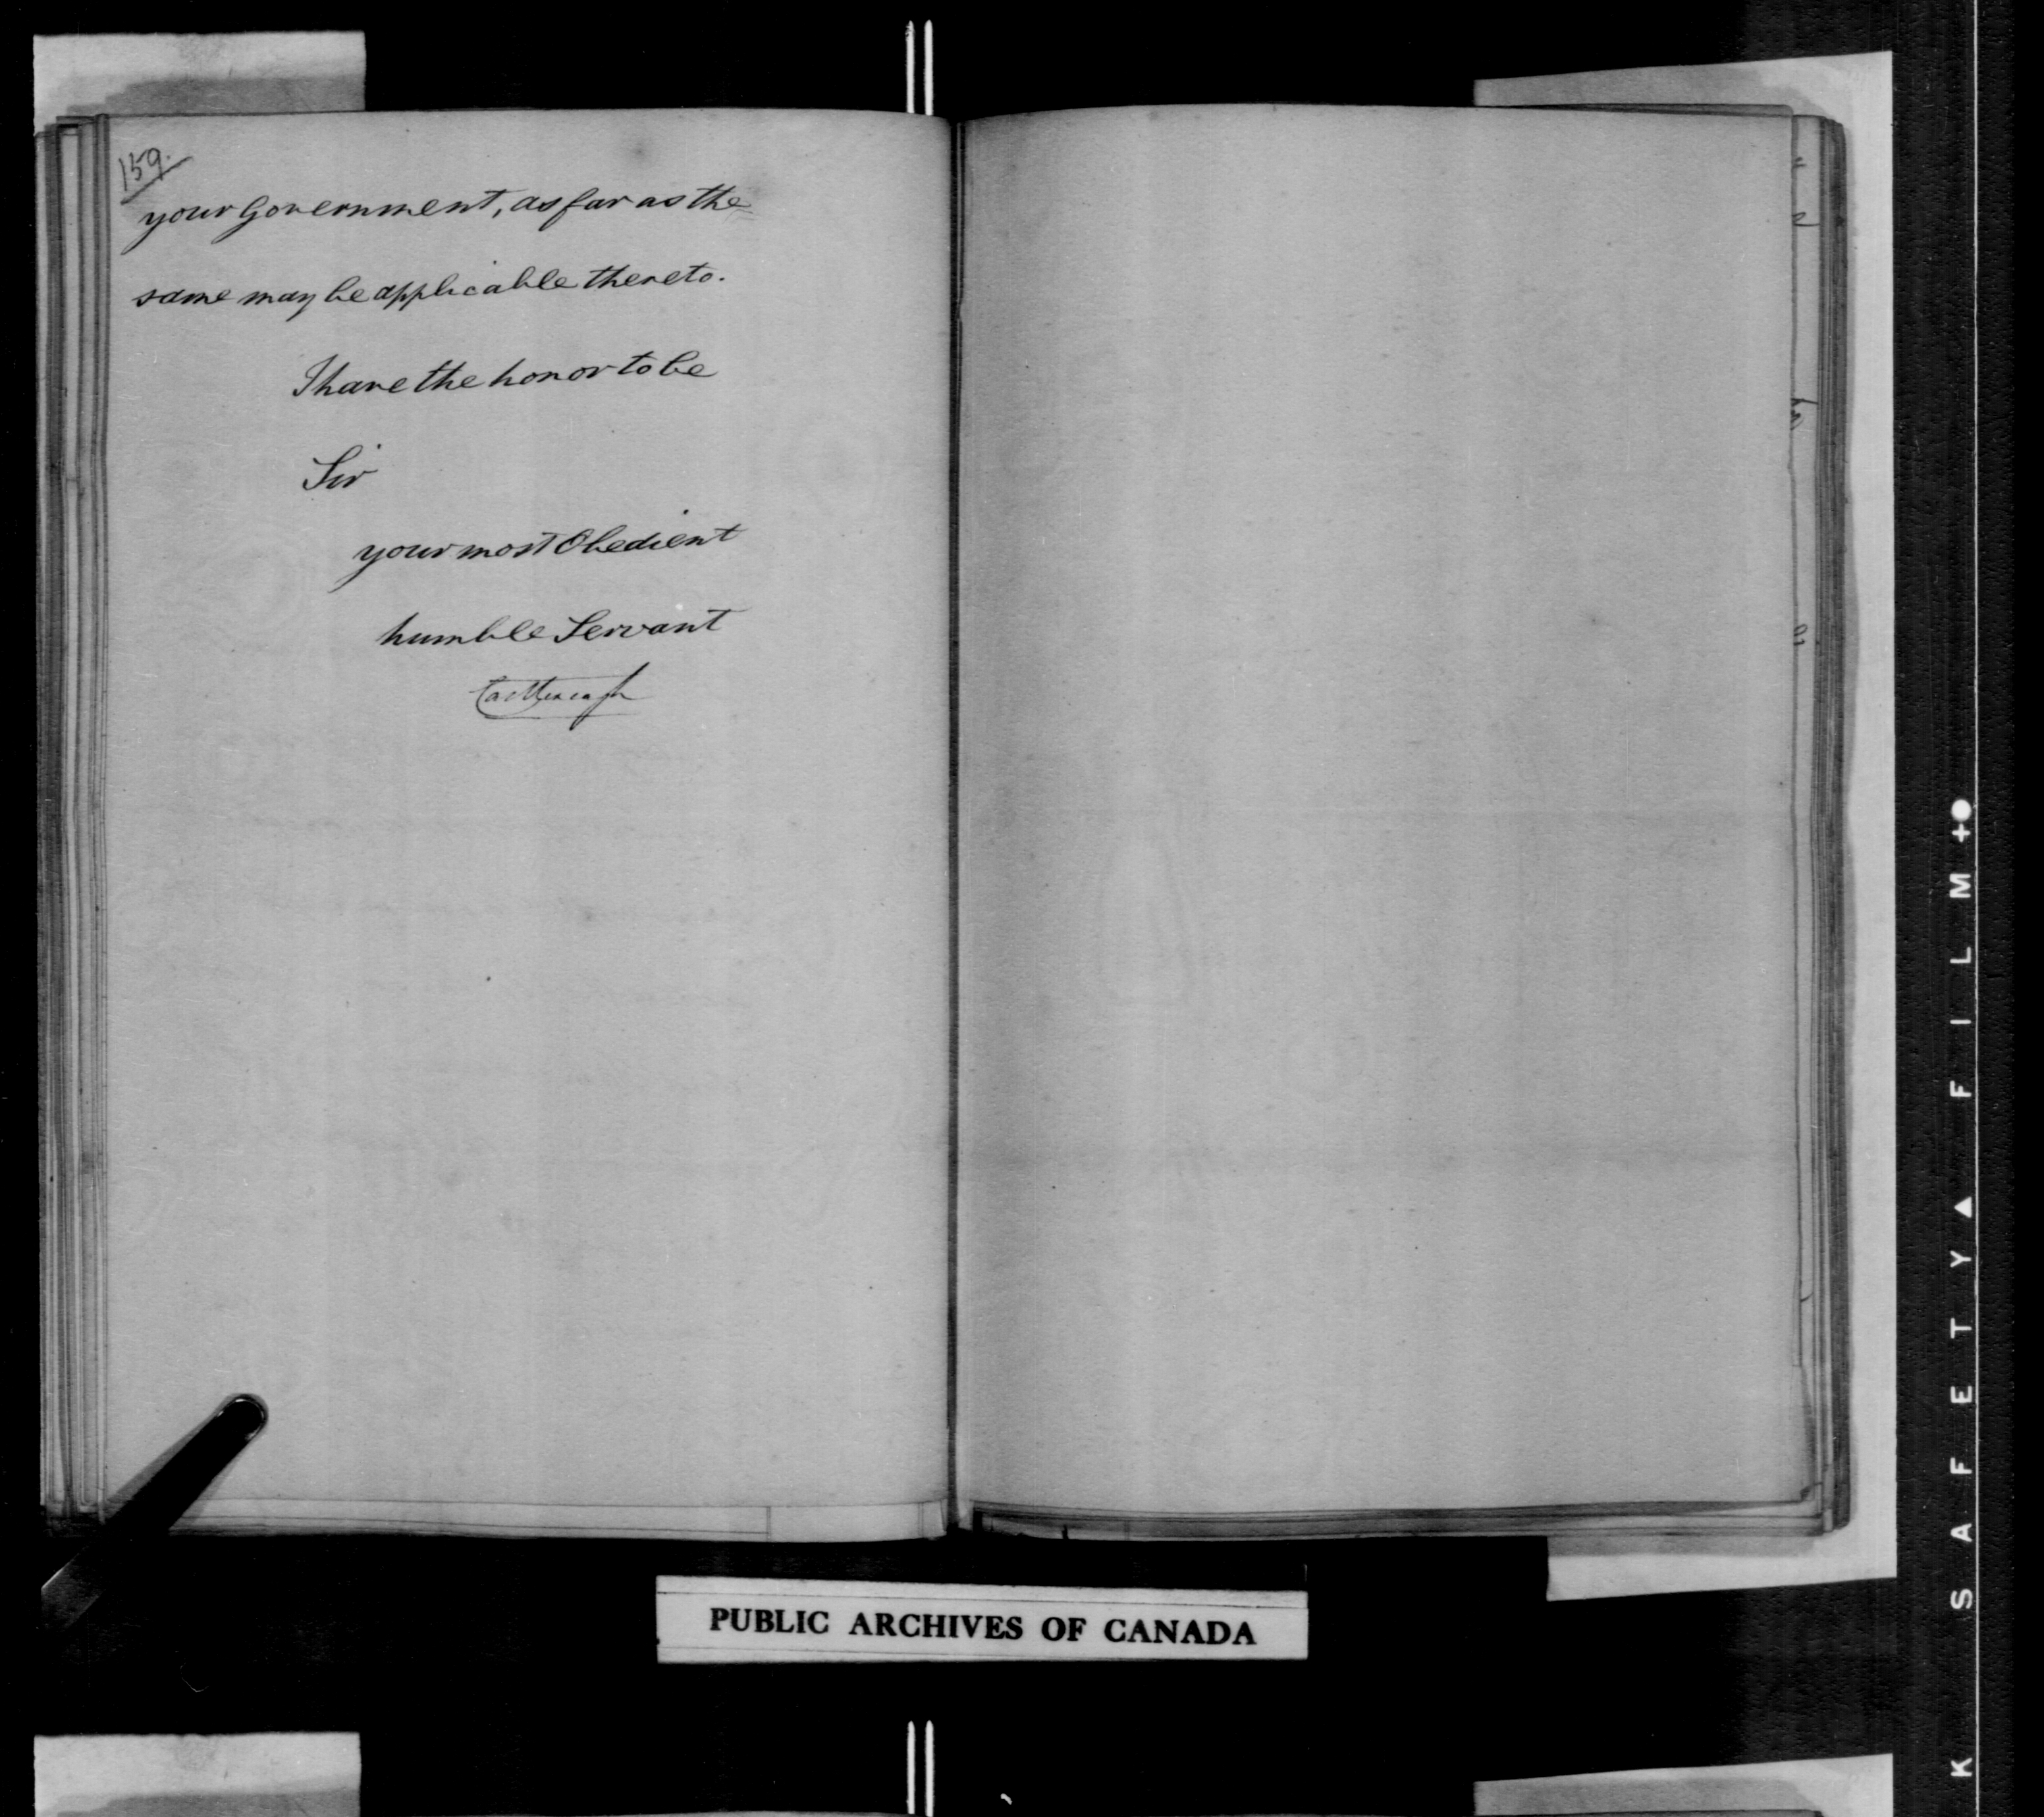 159.
your Government, as far as the
same may be applicable thereto.
I have the honor to be
Sir
your most Obedient
humble Servant
Castlereagh
PUBLIC ARCHIVES OF CANADA
K SAFETY▲ FILM